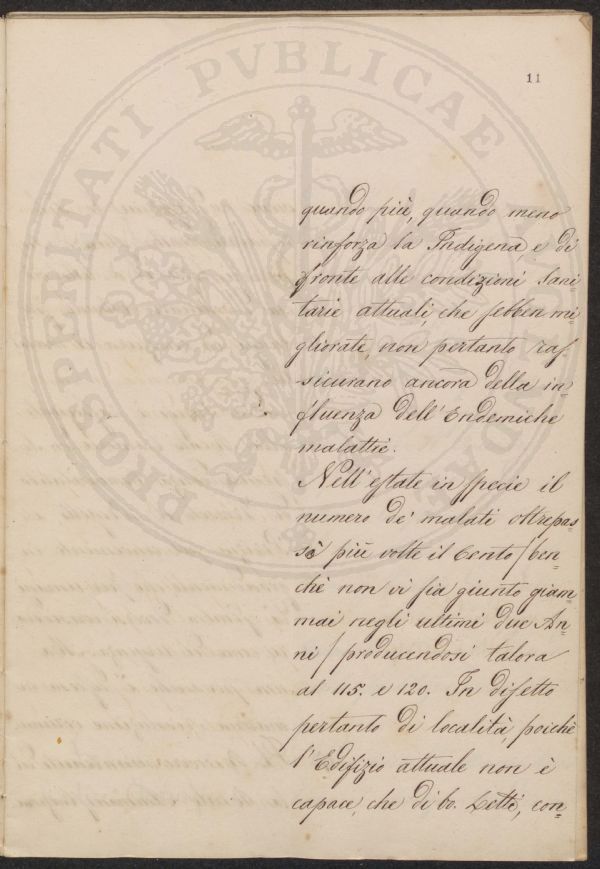 11
PROSPERITATI PVBLICAE
quando più, quando meno
rinforza la Indigena, e di
fronte alle condizioni Sani=
tarie attuali, che sebben mi=
gliorate, non pertanto ras=
sicurano ancora della in=
fluenza dell'Endemiche
malattie.
Nell'estate in specie il
numero de' malati oltrepas=
sò più volte il Cento / ben=
chè non vi sia giunto giam=
mai negli ultimi due An=
ni / producendosi talora
al 115. e 120. In difetto
pertanto di località, poichè
l'Edifizio attuale non è
capace, che di 60. Letti, con=